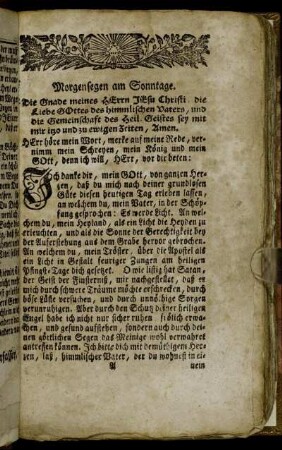 Morgensegen am Sonntage.
Die Gnade meines HErrn JEsu Christi, die
Liebe GOttes des himmlischen Vaters, und
die Gemeinschaft des Heil. Geistes sey mit
mir itzo und zu ewigen Zeiten, Amen.
HErr höre mein Wort, merke auf meine Rede, ver-
nimm mein Schreyen, mein König und mein
GOtt, denn ich will, HErr, vor dir beten:
Ich danke dir, mein GOtt, von ganzen Her-
zen, daß du mich nach deiner grundlosen
Güte diesen heutigen Tag erleben lassen,
an welchem du, mein Vater, in der Schöp-
fung gesprochen: Es werde Licht. An wel-
chem du, mein Heyland, als ein Licht die Heyden zu
erleuchten, und als die Sonne der Gerechtigkeit bey
der Auferstehung aus dem Grabe hervor gebrochen.
An welchem du, mein Tröster, über die Apostel als
ein Licht in Gestalt feuriger Zungen am heiligen
Pfingst-Tage dich gesetzet. O wie listig hat Satan,
der Geist der Finsterniß, mir nachgestellet, daß er
mich durch schwere Träume möchte erschrecken, durch
böse Lüste versuchen, und durch unnöthige Sorgen
verunruhigen. Aber durch den Schutz deiner heiligen
Engel habe ich nicht nur sicher ruhen, frölich erwa-
chen, und gesund aufstehen, sondern auch durch dei-
nen görtlichen Segen das Meinige wohl verwahret
antreffen können. Ich bitte dich mit demüthigem Her-
zen, laß, himmlischer Vater, der du wohnest in ei-
A nem